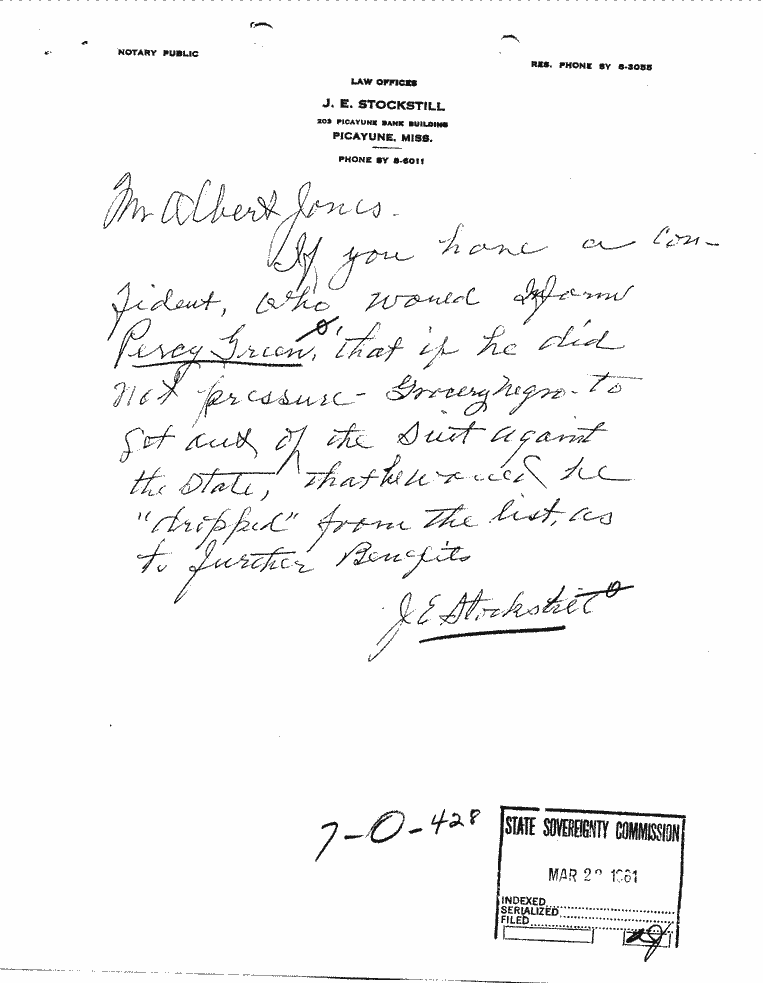 NOTARY PUBLIC
RES. PHONE SY 8-3055
LAW OFFICES
J. E. STOCKSTILL
203 PICAYUNE BANK BUILDING
PICAYUNE, MISS.
PHONE SY 8-6011
Mr Albert Jones.
If you have a Con-
fident, who would Inform
Percy Green, that if he did
not pressure - Grocery negro - to
get out of the Suit against
the State, that he would be
"dropped" from the list, as
to further Benefits
J E Stockstill
7-0-428
STATE SOVEREIGNTY COMMISSION
MAR 2 1961
INDEXED
SERIALIZED
FILED